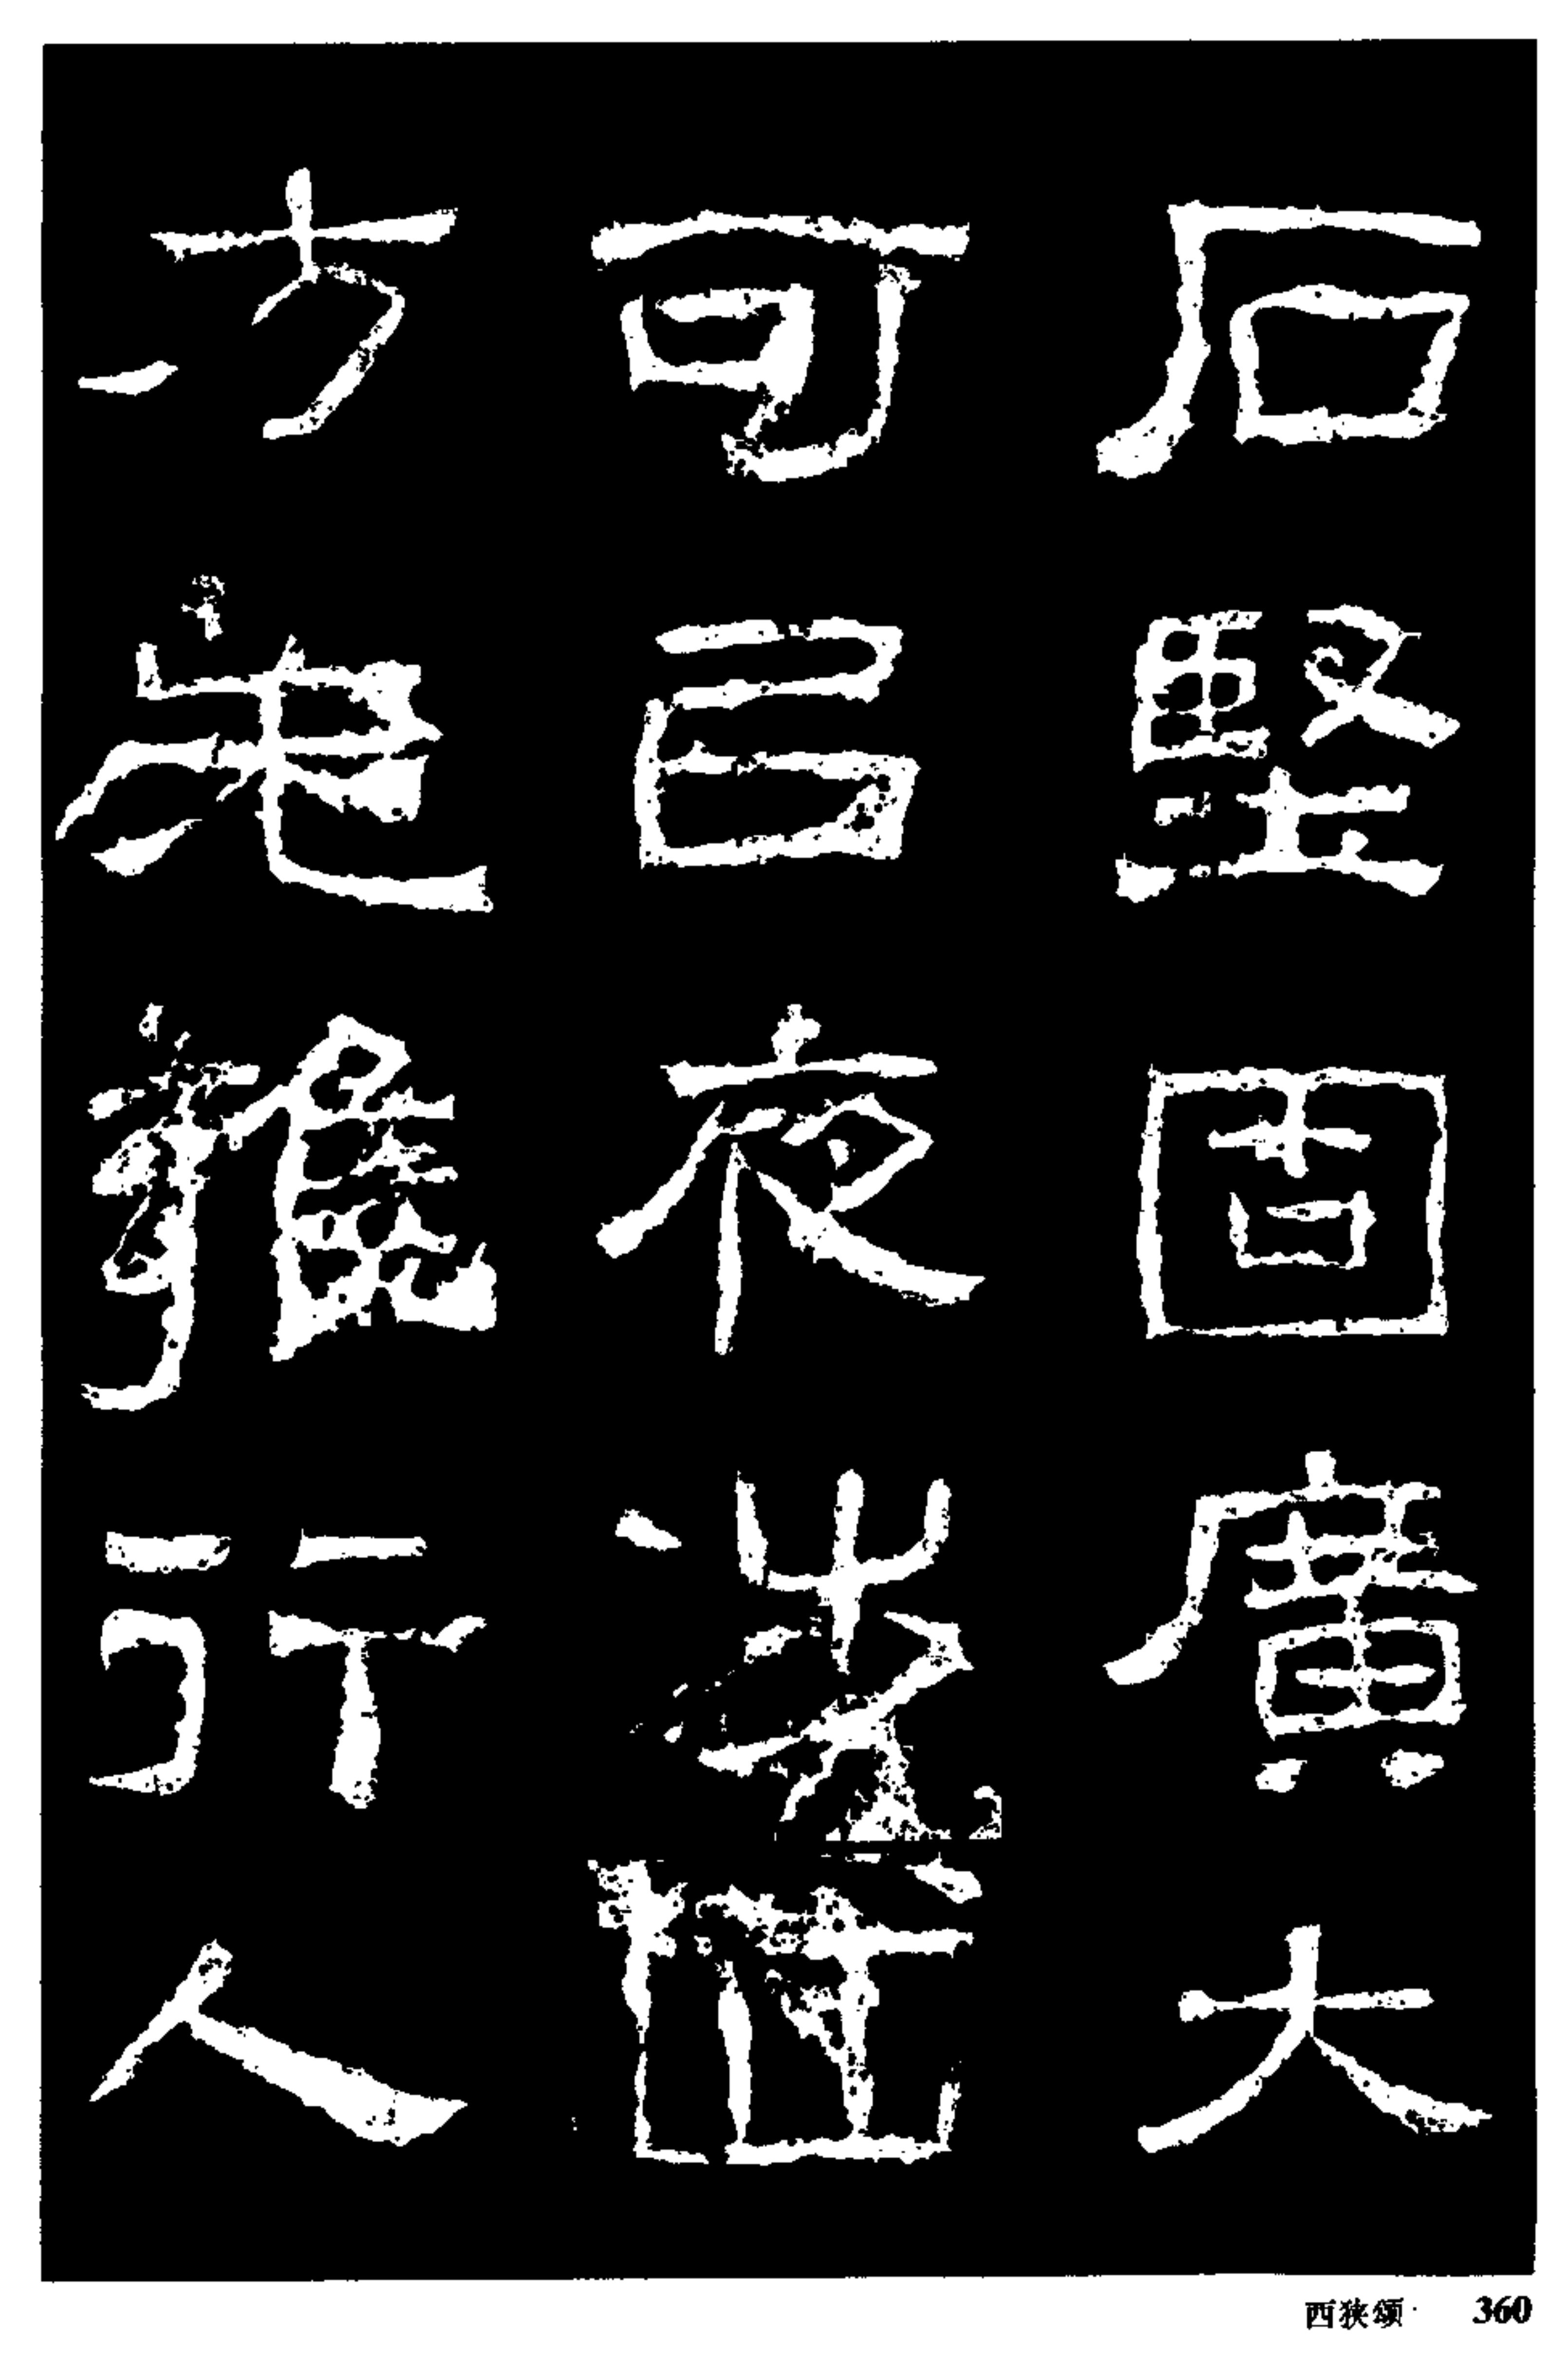 石堅固廣大
可㠯夜涉四
方无雍行人
西狭颂· 360